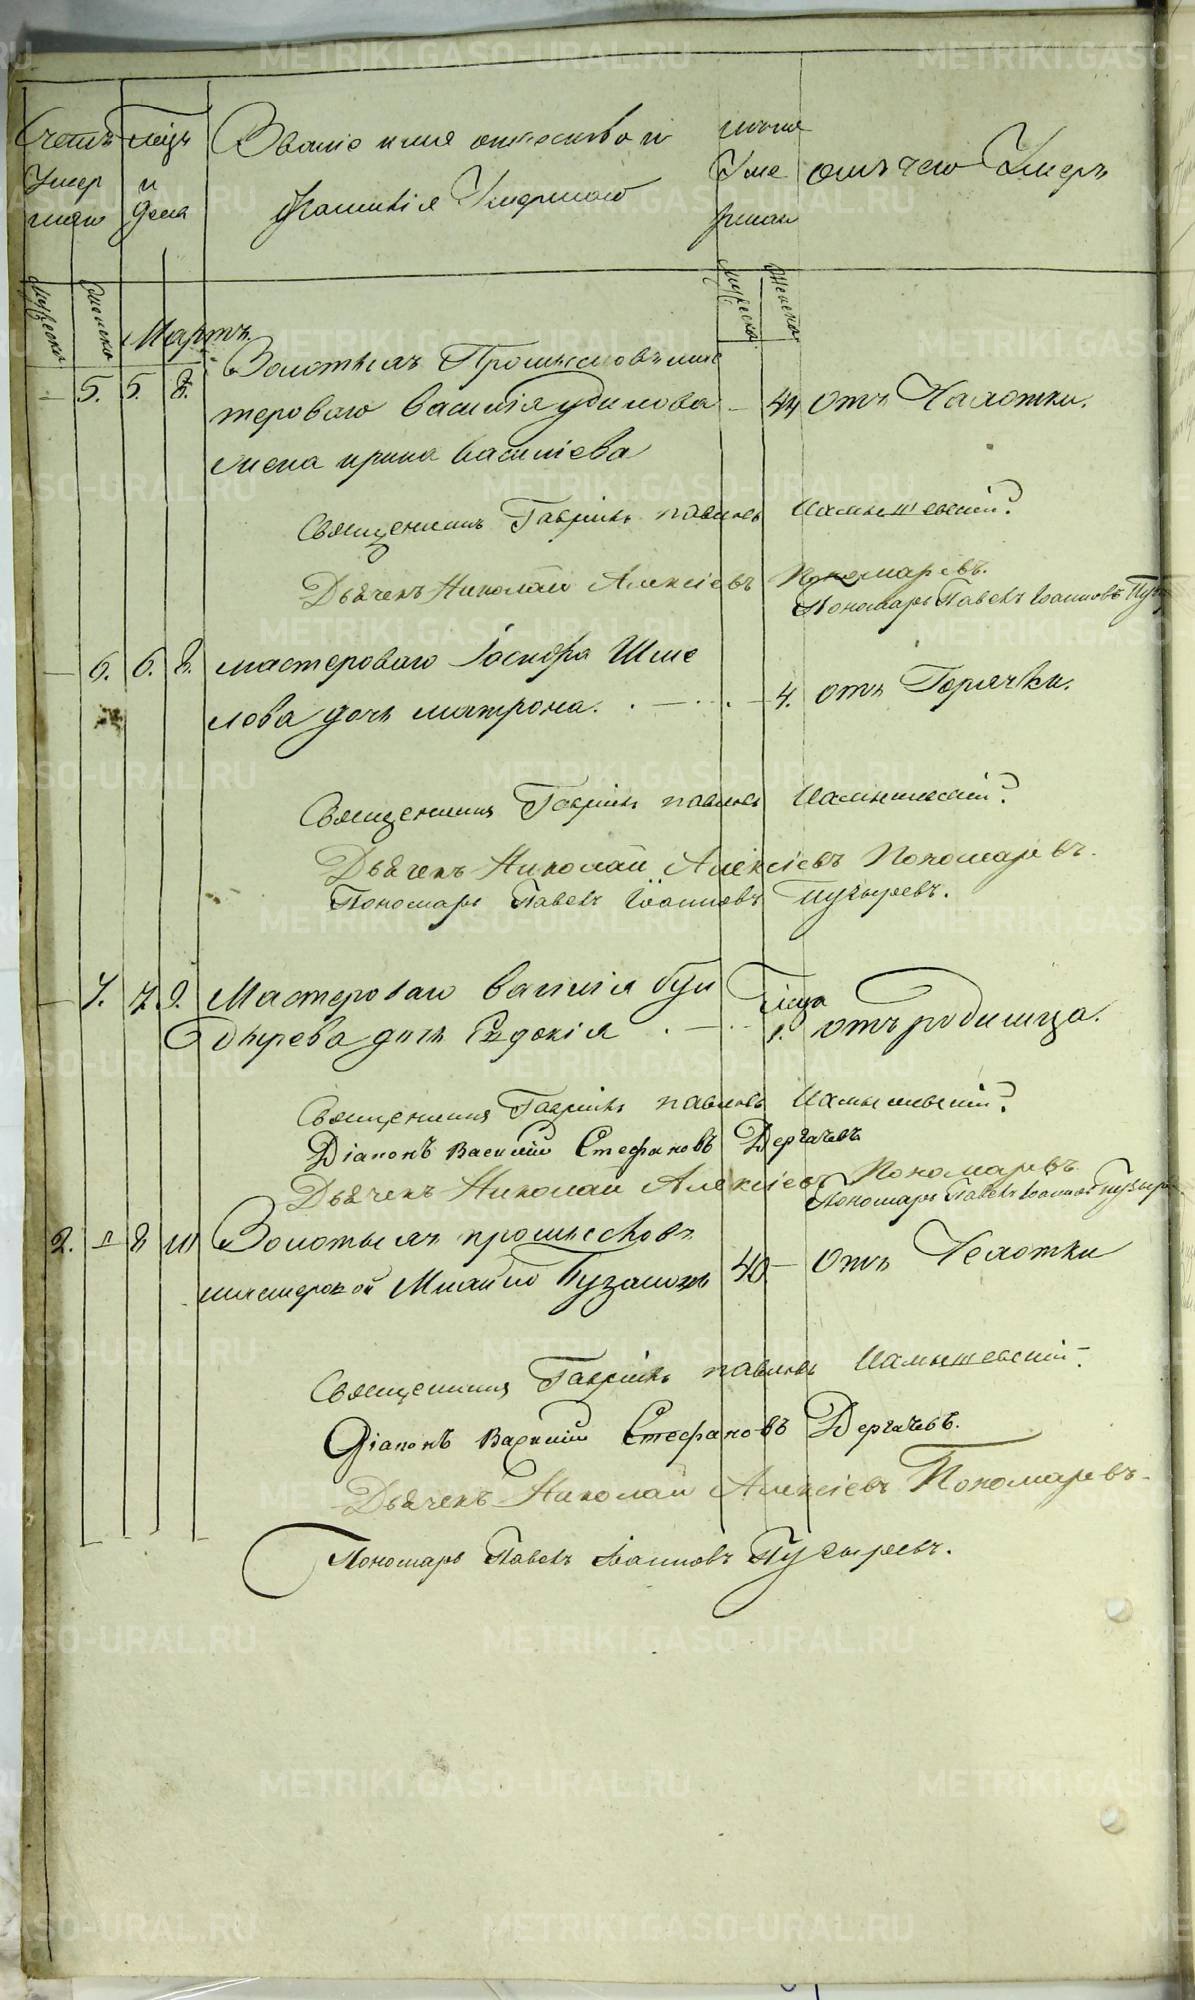 Счетъ Умер шихъ
Мѣцъ и день
Званіе имя отчество и фамилія Умершаго
лѣта Уме ршаго
отъ чего Умеръ
мужеска
женска
Мартъ.
мужеска
женска
Золотыхъ Промысловъ мас
5. 5. 8. тероваго Василія удилова 44 отъ Чахотки.
жена ирина васильева
Священникъ Гавріилъ павловъ Камышевскій
Дьячекъ Николай Алексіевъ Пономаревъ.
Пономарь Павелъ Іоанновъ
6. 6. 8. мастероваго Іосифа Шме
лова дочь матрона. 4. отъ Горячки.
Священникъ Гавріилъ павловъ Камышевскій
Дьячекъ Николай Алексіевъ Пономаревъ.
Пономарь Павелъ Іоанновъ Пузыревъ.
7. 7. 9. Мастероваго василія
дочь Евдокія 1. отъ родимца.
Священникъ Гавріилъ павловъ Камышевскій
Діаконъ Василій Стефановъ Дергачевъ
Дьячекъ Николай Алексіевъ Пономаревъ
Пономарь Павелъ Іоанновъ Пузыре
2. 8 Золотыхъ промысловъ
мастеровой Михайло Бузановъ 40 отъ Чехотки
Священникъ Гавріилъ павловъ Камышевскій
Діаконъ Василій Стефановъ Дергачевъ.
Дьячекъ Николай Алексіевъ Пономаревъ
Пономарь Павелъ Іоанновъ Пузыревъ.
METRIKI.GASO-URAL.RU